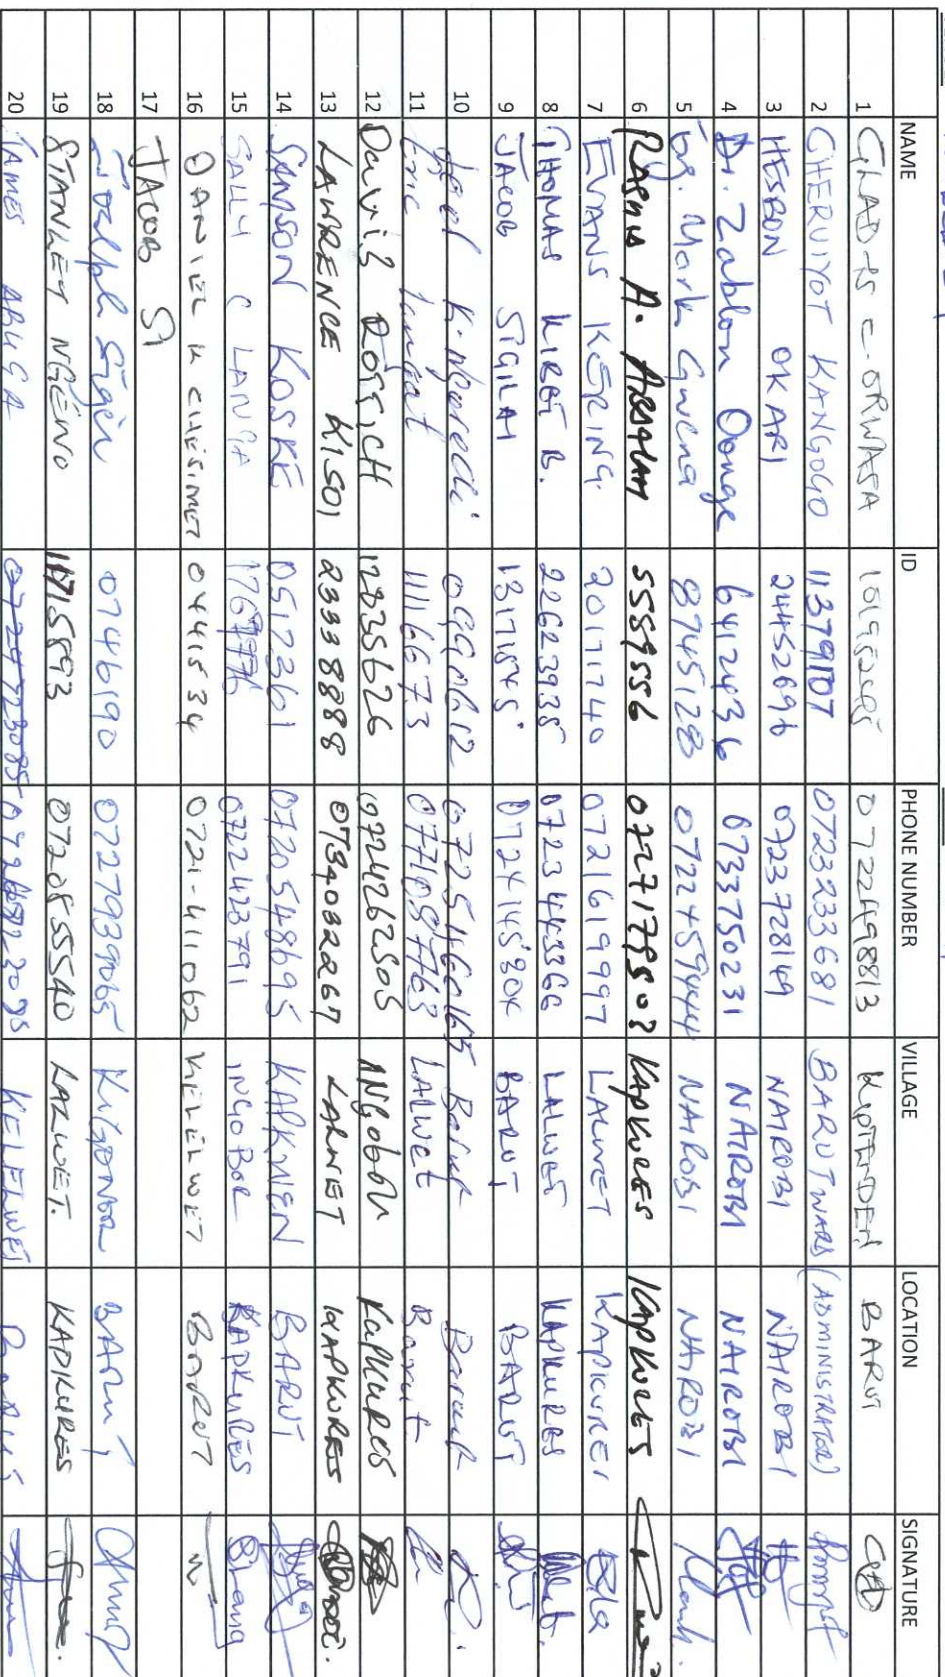 NAME ID PHONE NUMBER VILLAGE LOCATION SIGNATURE
1 GLADYS C. ORWASA 0722498813 KIPTENDEN BARUT
2 CHERUIYOT KANGOGO 11379107 0723233681 BARUT WARD (ADMINISTRATOR)
3 HESBON OKARI 24452696 0723728149 NAIROBI NAIROBI
4 Dr. Zablon Oonge 6412436 0733750231 NAIROBI NAIROBI
5 Eng. Mark Gwena 8745128 0722459444 NAIROBI NAIROBI
6 A. 5559556 0727179503 KAPKURES KAPKURES
7 EVANS KERING. 20171740 0721619997 LALWET KAPKURES
8 THOMAS KIBET B. 22623935 0723443366 LALWET KAPKURES
9 JACOB SIGILAI 13171545 0724145804 BARUT BARUT
10 Joel 0725466165 Barut Barut
11 Eric Langat 11116673 0710587763 LALWET Barut
12 David ROTICH 12035626 0724262505 Kapkures
13 LAWRENCE KISOI 23338888 0734032267 LALWET KAPKURES
14 SAMSON KOSKE 051723601 0720548695 KAPKWEN BARUT
15 SALLY C LANGAT 0722423791 INGOBOR KAPKURES
16 DANIEL K CHESIMET 04415534 0721-411062 KELELWET BARUT
17 JACOB SI
18 Joseph Sigei 07446190 07227939065 BARUT
19 STANLEY NGENO 11715893 0720855540 LALWET. KAPKURES
20 JAMES ABUGA KELELWET